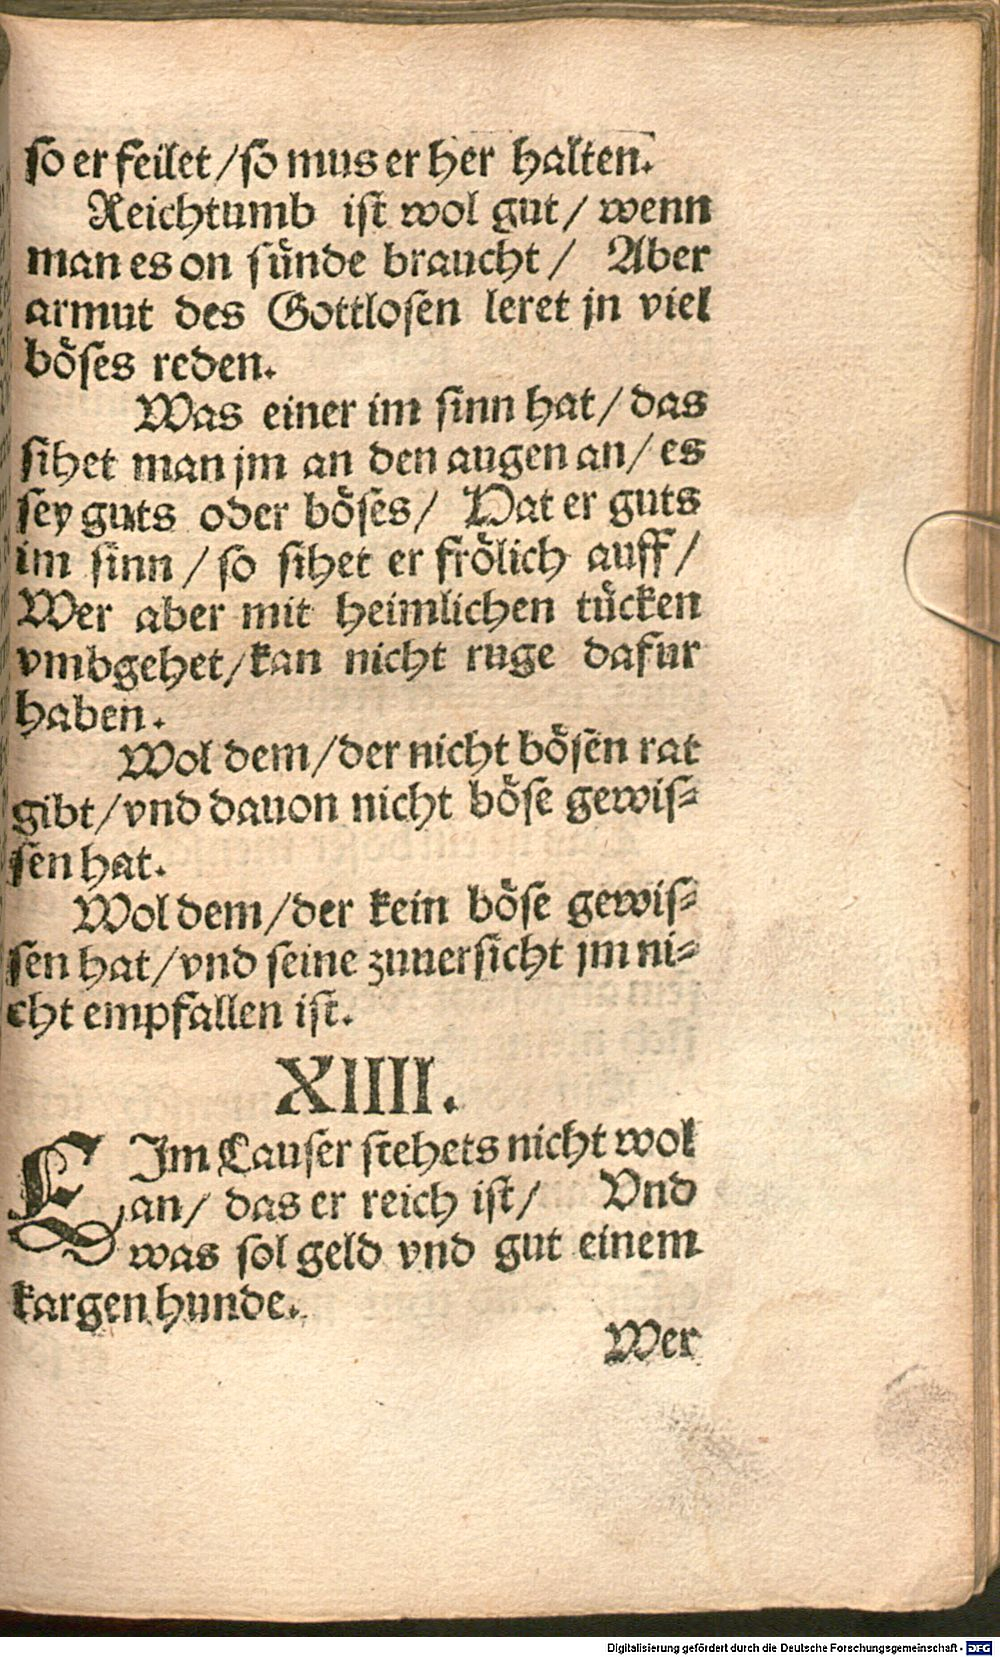 so er feilet / so mus er her halten.
Reichtumb ist wol gut / wenn
man es on sünde braucht / Aber
armut des Gottlosen leret jn viel
böses reden.
Was einer im sinn hat / das
sihet man jm an den augen an / es
sey guts oder böses / Hat er guts
im sinn / so sihet er frölich auff /
Wer aber mit heimlichen tücken
vmbgehet / kan nicht ruge dafur
haben.
Wol dem / der nicht bösen rat
gibt / vnd dauon nicht böse gewis⸗
sen hat.
Wol dem / der kein böse gewis⸗
sen hat / vnd seine zuuersicht jm ni⸗
cht empfallen ist.
XIIII.
EIm Lauser stehets nicht wol
an / das er reich ist / Vnd
was sol geld vnd gut einem
kargen hunde.
Wer
Digitalisierung gefördert durch die Deutsche Forschungsgemeinschaft - DFG